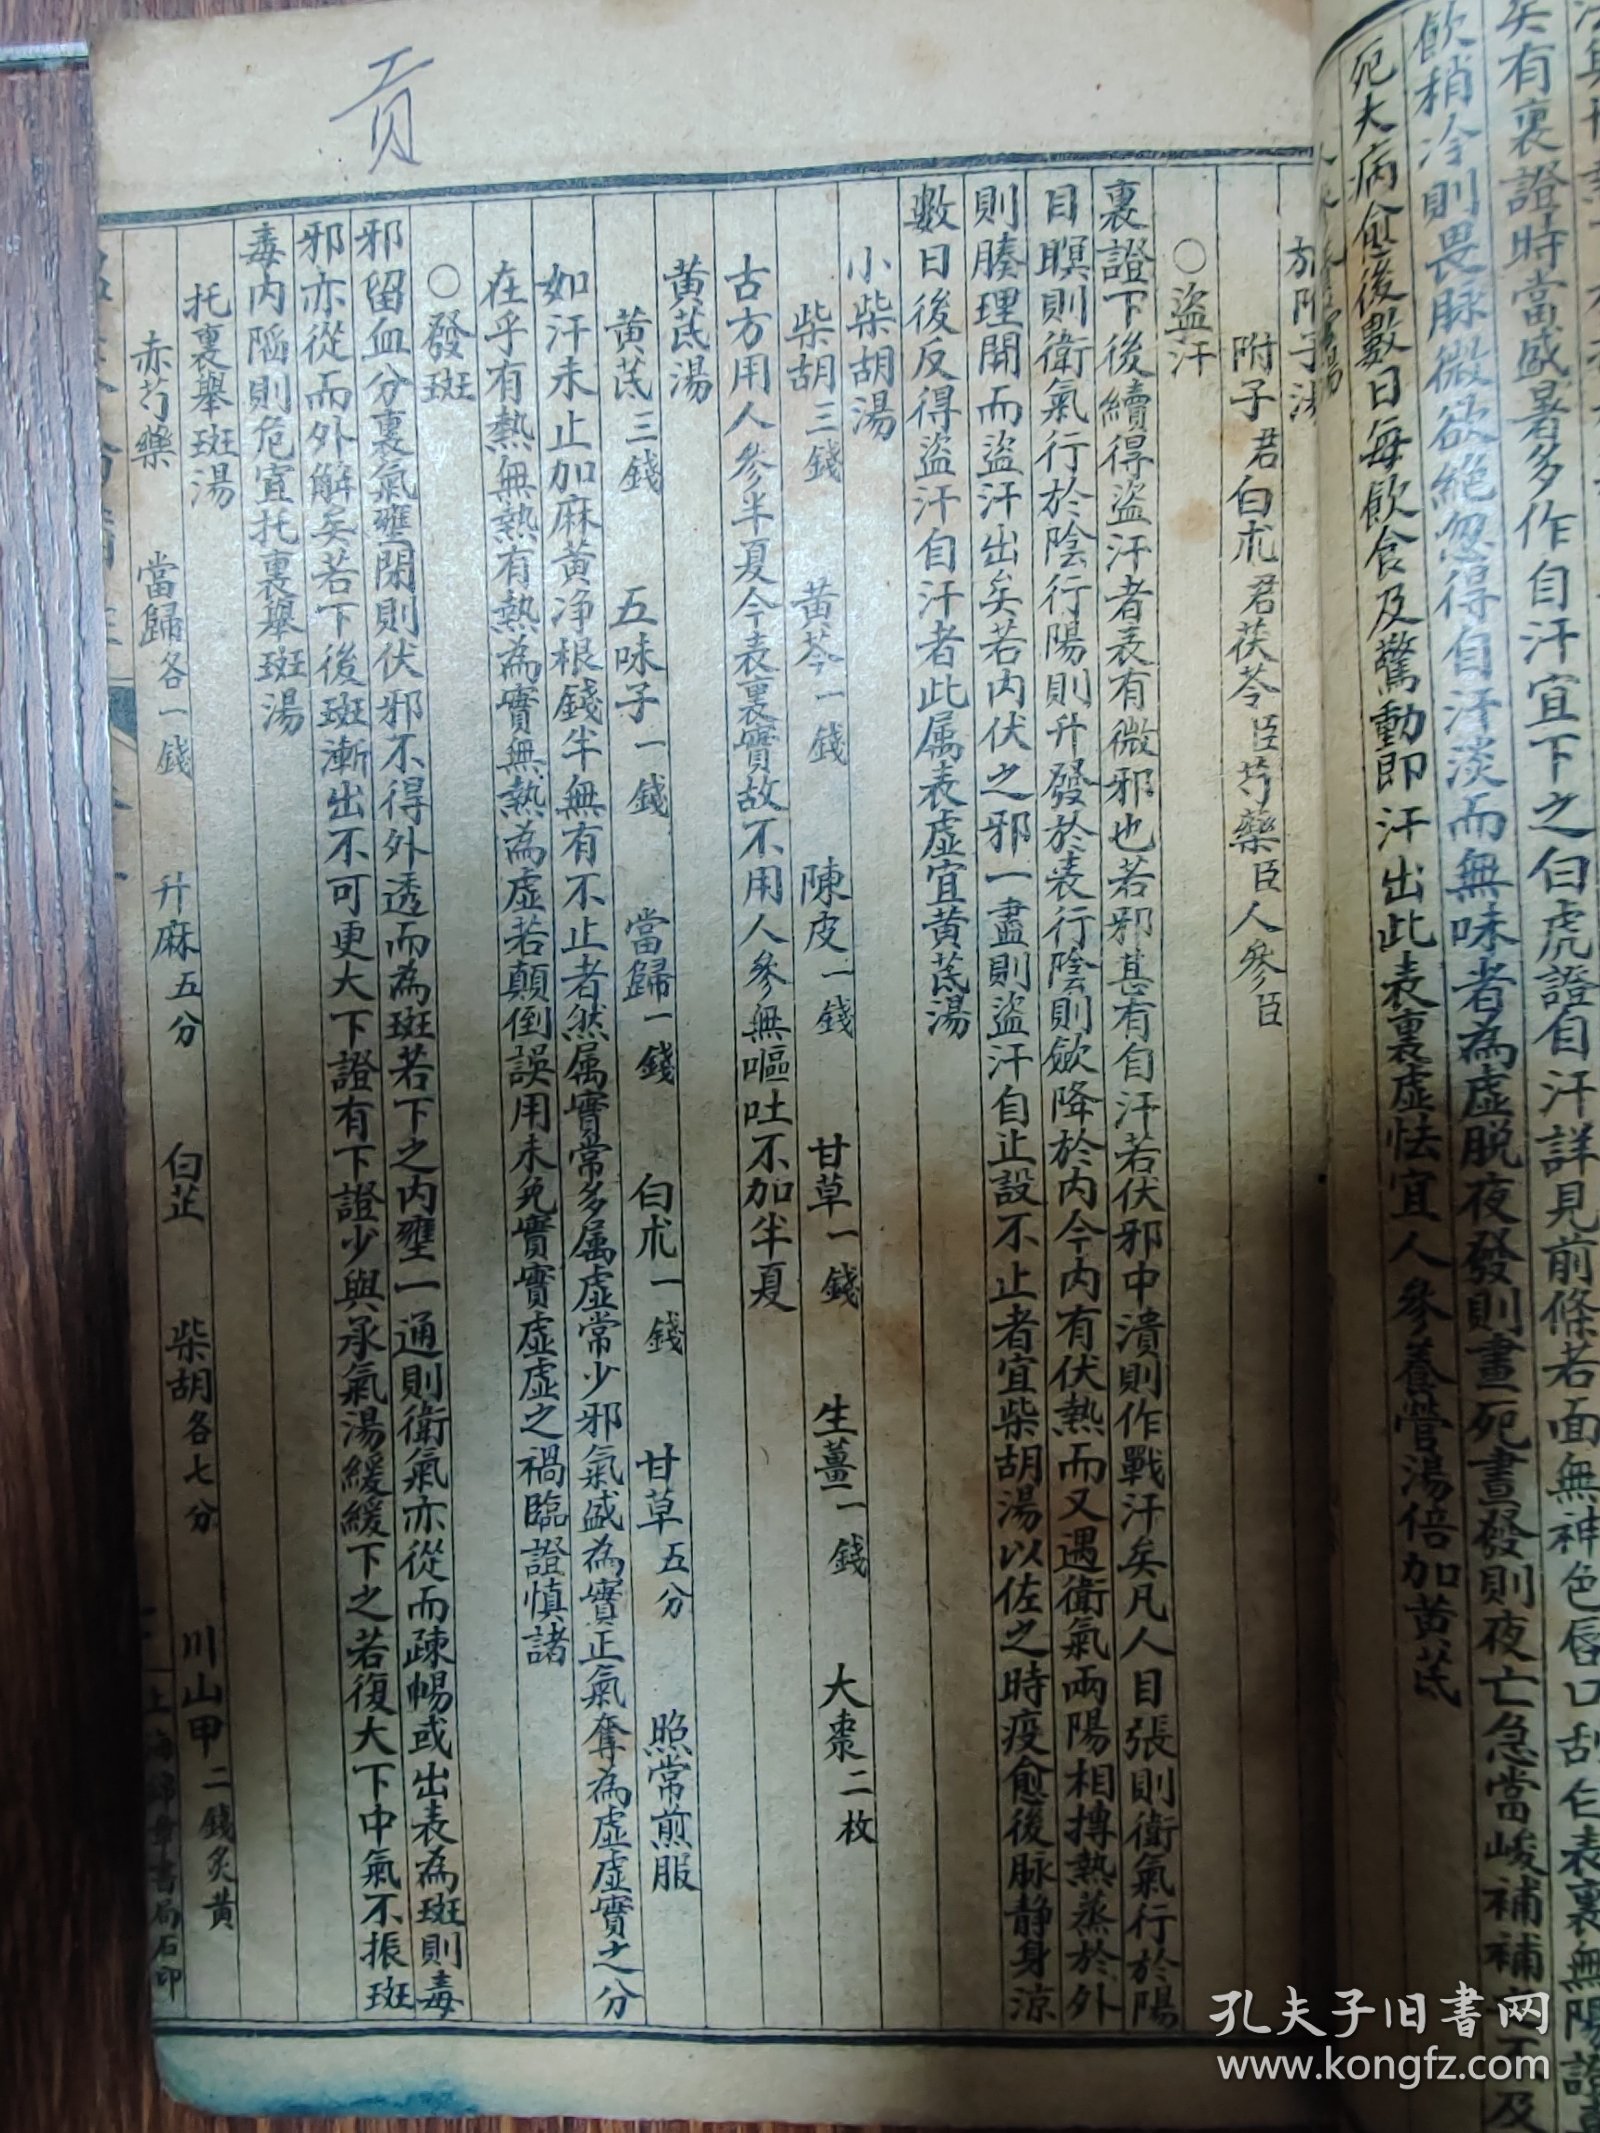 矣有裏證時當盛暑多作自汗宜下之白虎證自汗詳見前條若面無神色唇口刮白表裏無陽證
飲稍冷則畏脉微欲絶忽得自汗淡而無味者為虛脱夜發則晝死晝發則夜亡急當峻補補
死大病愈後數日每飲食及驚動即汗出此表裏虛怯宜人參養營湯倍加黄芪
貢
附子君白朮君茯苓臣芍藥臣人參臣
○盜汗
裏證下後續得盜汗者表有微邪也若邪甚有自汗若伏邪中潰則作戰汗矣凡人目張則衛氣行於陽
目瞑則衛氣行於陰行陽則升發於表行陰則斂降於内今内有伏熱而又遇衛氣兩陽相搏熱蒸於外
則腠理開而盜汗出矣若内伏之邪一盡則盜汗自止設不止者宜柴胡湯以佐之時疫愈後脉静身涼
數日後反得盜汗自汗者此属表虛宜黄芪湯
小柴胡湯
柴胡三錢 黄芩一錢 陳皮一錢 甘草一錢 生薑一錢 大棗二枚
古方用人參半夏今表裏實故不用人參無嘔吐不加半夏
黄芪湯
黄芪三錢 五味子一錢 當歸一錢 白朮一錢 甘草五分 照常煎服
如汗未止加麻黄净根錢半無有不止者然属實常多属虛常少邪氣盛為實正氣奪為虛虛實之分
在乎有熱無熱有熱為實無熱為虛若顛倒誤用未免實實虛虛之禍臨證慎諸
○發斑
邪留血分裏氣壅閉則伏邪不得外透而為斑若下之内壅一通則衛氣亦從而疎暢或出表為斑則毒
邪亦從而外解矣若下後斑漸出不可更大下證有下證少與承氣湯緩緩下之若復大下中氣不振斑
毒内陷則危宜托裏舉斑湯
托裏舉斑湯
赤芍藥 當歸各一錢 升麻五分 白芷 柴胡各七分 川山甲二錢炙黄
上海錦章書局石印
孔夫子旧书网
www.kongfz.com